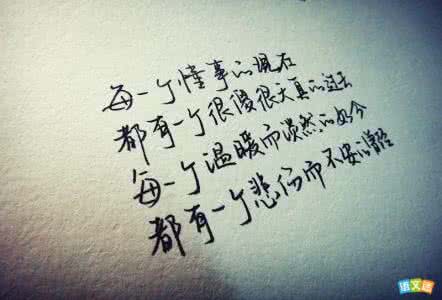 每一个懂事的现在
都有一个很傻很天真的过去
每一个温暖而淡然的如今
都有一个悲伤而不安的曾经
语文迷